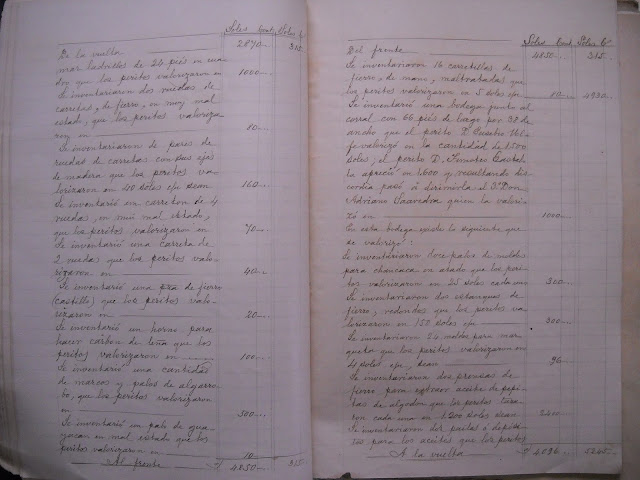 Soles Cent. Soles C.
De la vuelta 2870 315.
mas ladrillos de 24 piés en cua
dro que los peritos valorizaron en 1000
Se inventariaron dos ruedas de
carretas, de fierro, en muy mal
estado, que los peritos valoriza-
ron en 80
Se inventariaron pares de
ruedas de carretas con sus ejes
de madera que los peritos va-
lorizaron en 40 soles c/u sean 160
Se inventarió un carreton de 4
ruedas, en mui mal estado,
que los peritos valorizaron en 70
Se inventarió una carreta de
2 ruedas que los peritos valo-
rizaron en 40
Se inventarió una pza de fierro
(castillo) que los peritos valo-
rizaron en 20
Se inventarió un horno para
hacer carbon de leña que los
peritos valorizaron en 100
Se inventarió una cantidad
de marcos y palos de algarro-
bo, que los peritos valorizaron
en 500
Se inventarió un palo de gua-
yacan en mal estado que los
peritos valorizaron en 10
Al frente 4850 315
Soles Cent. Soles C.
Del frente 4850 315.
Se inventariaron 16 carretillas de
fierro, de mano, maltratadas que
los peritos valorizaron en 5 soles c/u 80 4930
Se inventarió una bodega junto al
corral con 66 piés de largo por 38 de
ancho que el perito D.
valorizó en la cantidad de 1500
soles; el perito D. Timoteo
la apreció en 1600 y resultando dis-
cordia pasó á dirimirla el 3º Don
Adriano Saavedra quien la valori-
zó en 1000
En esta bodega existe lo siguiente que
se valorizó:
Se inventariaron doce palos de moldes
para chancaca en atado que los peri-
tos valorizaron en 25 soles cada uno 300
Se inventariaron dos estanques de
fierro, redondos que los peritos va-
lorizaron en 150 soles c/u 300
Se inventariaron 24 moldes para mar-
queta que los peritos valorizaron en
4 soles c/u, sean 96
Se inventariaron dos prensas de
fierro para estraer aceite de pepi-
tas de algodon que los peritos tasa-
ron cada una en 1.200 soles sean 2400
Se inventariaron dos pailas ó depósi-
tos para los aceites que los peritos
A la vuelta 4.096 5245